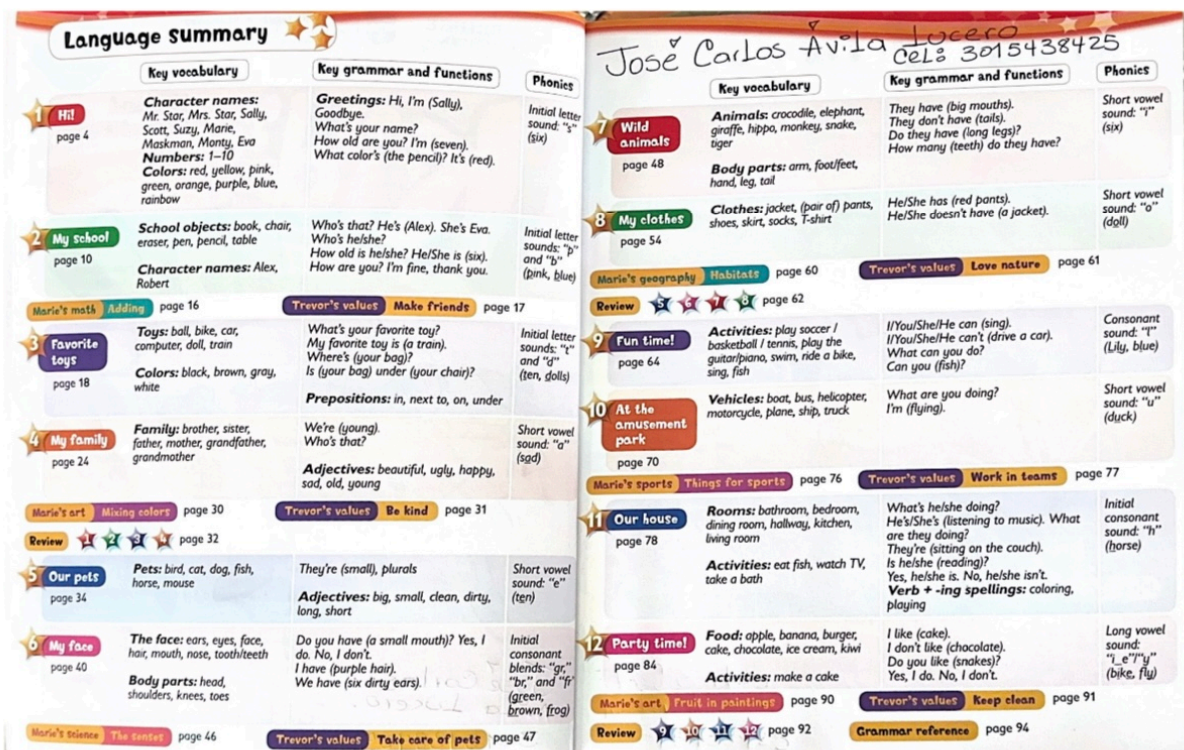 Language summary
Key vocabulary
Key grammar and functions
Phonics
1 Hi!
page 4
Character names:
Mr. Star, Mrs. Star, Sally,
Scott, Suzy, Marie,
Maskman, Monty, Eva
Numbers: 1–10
Colors: red, yellow, pink,
green, orange, purple, blue,
rainbow
Greetings: Hi, I'm (Sally),
Goodbye.
What's your name?
How old are you? I'm (seven).
What color's (the pencil)? It's (red).
Initial letter
sound: "s"
(six)
2 My school
page 10
School objects: book, chair,
eraser, pen, pencil, table
Character names: Alex,
Robert
Who's that? He's (Alex). She's Eva.
Who's he/she?
How old is he/she? He/She is (six).
How are you? I'm fine, thank you.
Initial letter
sounds: "p"
and "b"
(pink, blue)
Marie's math Adding page 16
Trevor's values Make friends page 17
3 Favorite
toys
page 18
Toys: ball, bike, car,
computer, doll, train
Colors: black, brown, gray,
white
What's your favorite toy?
My favorite toy is (a train).
Where's (your bag)?
Is (your bag) under (your chair)?
Prepositions: in, next to, on, under
Initial letter
sounds: "t"
and "d"
(ten, dolls)
4 My family
page 24
Family: brother, sister,
father, mother, grandfather,
grandmother
We're (young).
Who's that?
Adjectives: beautiful, ugly, happy,
sad, old, young
Short vowel
sound: "a"
(sad)
Marie's art Mixing colors page 30
Trevor's values Be kind page 31
Review 1 2 3 4 page 32
5 Our pets
page 34
Pets: bird, cat, dog, fish,
horse, mouse
They're (small), plurals
Adjectives: big, small, clean, dirty,
long, short
Short vowel
sound: "e"
(ten)
6 My face
page 40
The face: ears, eyes, face,
hair, mouth, nose, tooth/teeth
Body parts: head,
shoulders, knees, toes
Do you have (a small mouth)? Yes, I
do. No, I don't.
I have (purple hair).
We have (six dirty ears).
Initial
consonant
blends: "gr,"
"br," and "fr"
(green,
brown, frog)
Marie's science The senses page 46
Trevor's values Take care of pets page 47
José Carlos Ávila Lucero
Cel: 3015438425
Key vocabulary
Key grammar and functions
Phonics
7 Wild
animals
page 48
Animals: crocodile, elephant,
giraffe, hippo, monkey, snake,
tiger
Body parts: arm, foot/feet,
hand, leg, tail
They have (big mouths).
They don't have (tails).
Do they have (long legs)?
How many (teeth) do they have?
Short vowel
sound: "i"
(six)
8 My clothes
page 54
Clothes: jacket, (pair of) pants,
shoes, skirt, socks, T-shirt
He/She has (red pants).
He/She doesn't have (a jacket).
Short vowel
sound: "o"
(doll)
Marie's geography Habitats page 60
Trevor's values Love nature page 61
Review 5 6 7 8 page 62
9 Fun time!
page 64
Activities: play soccer /
basketball / tennis, play the
guitar/piano, swim, ride a bike,
sing, fish
I/You/She/He can (sing).
I/You/She/He can't (drive a car).
What can you do?
Can you (fish)?
Consonant
sound: "l"
(Lily, blue)
10 At the
amusement
park
page 70
Vehicles: boat, bus, helicopter,
motorcycle, plane, ship, truck
What are you doing?
I'm (flying).
Short vowel
sound: "u"
(duck)
Marie's sports Things for sports page 76
Trevor's values Work in teams page 77
11 Our house
page 78
Rooms: bathroom, bedroom,
dining room, hallway, kitchen,
living room
Activities: eat fish, watch TV,
take a bath
What's he/she doing?
He's/She's (listening to music). What
are they doing?
They're (sitting on the couch).
Is he/she (reading)?
Yes, he/she is. No, he/she isn't.
Verb + -ing spellings: coloring,
playing
Initial
consonant
sound: "h"
(horse)
12 Party time!
page 84
Food: apple, banana, burger,
cake, chocolate, ice cream, kiwi
Activities: make a cake
I like (cake).
I don't like (chocolate).
Do you like (snakes)?
Yes, I do. No, I don't.
Long vowel
sound:
"i_e"/"y"
(bike, fly)
Marie's art Fruit in paintings page 90
Trevor's values Keep clean page 91
Review 9 10 11 12 page 92
Grammar reference page 94